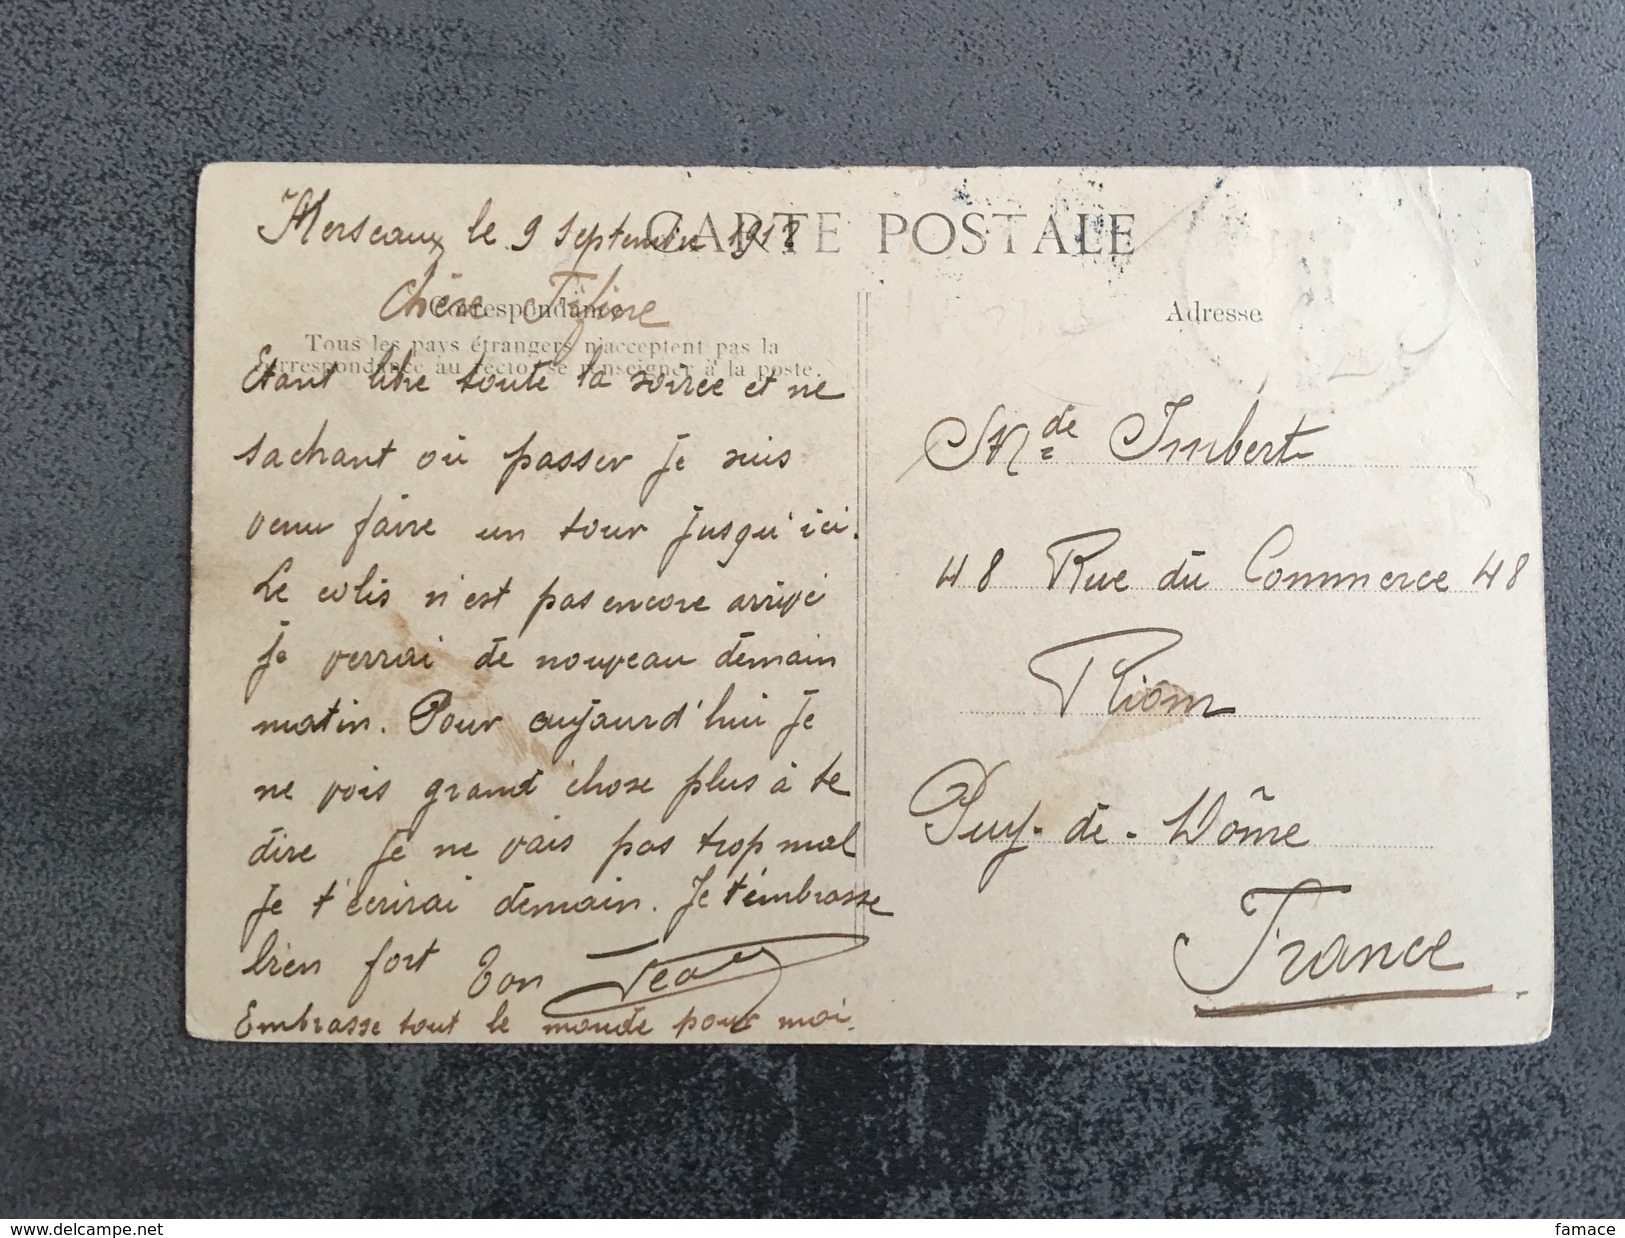 le 9 Septembre
CARTE POSTALE
Chère
Correspondance
Tous les pays étrangers n'acceptent pas la
correspondance au recto, se renseigner à la poste.
Etant libre toute la soirée et ne
sachant où passer je suis
venu faire un tour jusqu'ici.
Le colis n'est pas encore arrivé
Je verrai de nouveau demain
matin. Pour aujourd'hui je
ne vois grand chose plus à te
dire je ne vais pas trop mal
je t'écrirai demain. Je t'embrasse
bien fort Ton Jean
Embrasse tout le monde pour moi.
Adresse
Mde Imbert
48 Rue du Commerce 48
Riom
Puy-de-Dôme
France
delcampe.net
famace